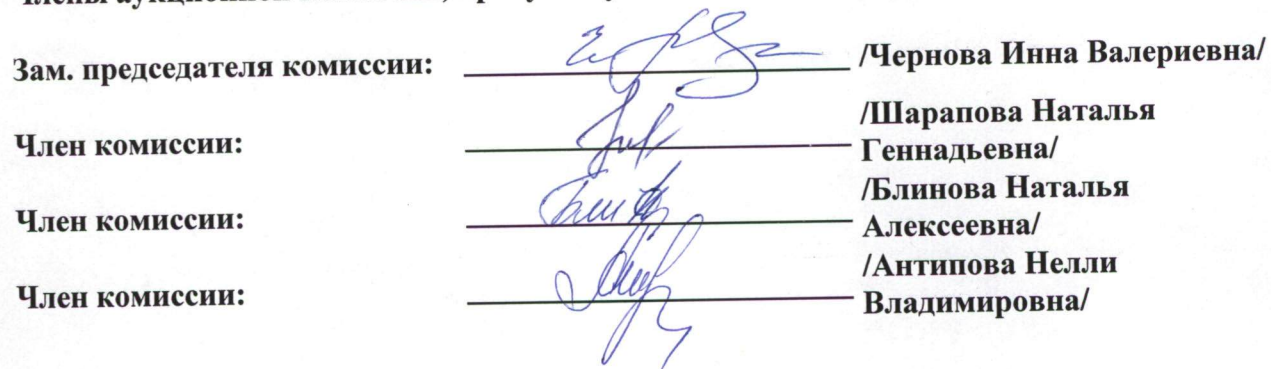 Зам. председателя комиссии: /Чернова Инна Валериевна/
Член комиссии: /Шарапова Наталья
Геннадьевна/
Член комиссии: /Блинова Наталья
Алексеевна/
Член комиссии: /Антипова Нелли
Владимировна/